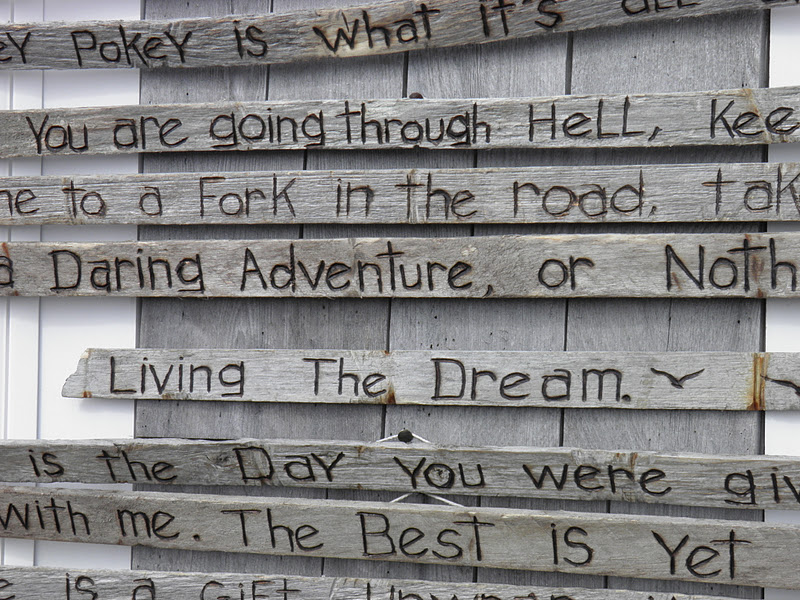 ey Pokey is what it's all
You are going through Hell, Kee
me to a Fork in the road, tak
a Daring Adventure, or Noth
Living The Dream.
is the Day You were giv
with me. The Best is Yet
is a Gift